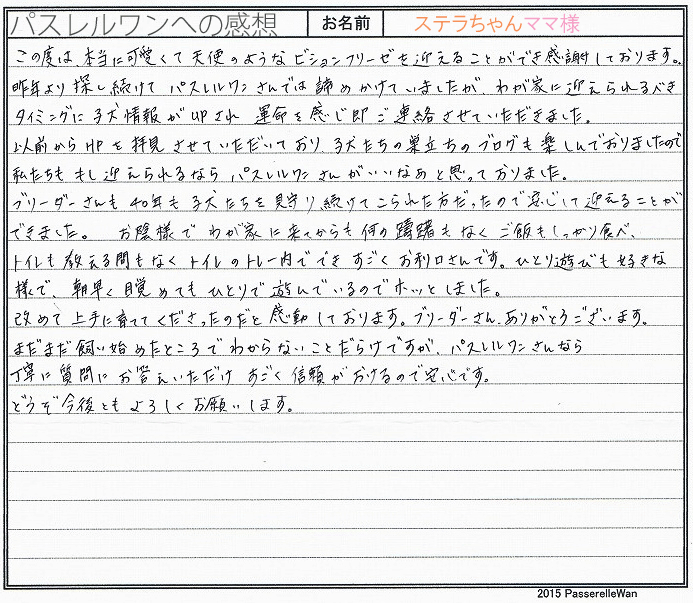 パスレルワンへの感想 お名前 ステラちゃんママ様
この度は、本当に可愛くて天使のようなビションフリーゼを迎えることができ感謝しております。
昨年より探し続けて パスレルワンさんでは諦めかけていましたが、わが家に迎えられるべき
タイミングに子犬情報がUPされ 運命を感じ即ご連絡させていただきました。
以前からHPを拝見させていただいており、子犬たちの巣立ちのブログも楽しんでおりましたので
私たちも もし迎えられるなら パスレルワンさんがいいなぁと思っておりました。
ブリーダーさんも40年も子犬たちを見守り続けてこられた方だったので安心して迎えることが
できました。 お陰様で わが家に来てからも何の躊躇もなく ご飯もしっかり食べ、
トイレも教える間もなく トイレのトレー内ででき すごくお利口さんです。ひとり遊びも好きな
様で、朝早く目覚めてもひとりで遊んでいるのでホッとしました。
改めて 上手に育ててくださったのだと感動しております。ブリーダーさん、ありがとうございます。
まだまだ飼い始めたところでわからないことだらけですが、パスレルワンさんなら
丁寧に質問にお答えいただけ すごく信頼がおけるので安心です。
どうぞ今後ともよろしくお願いします。
2015 PasserelleWan